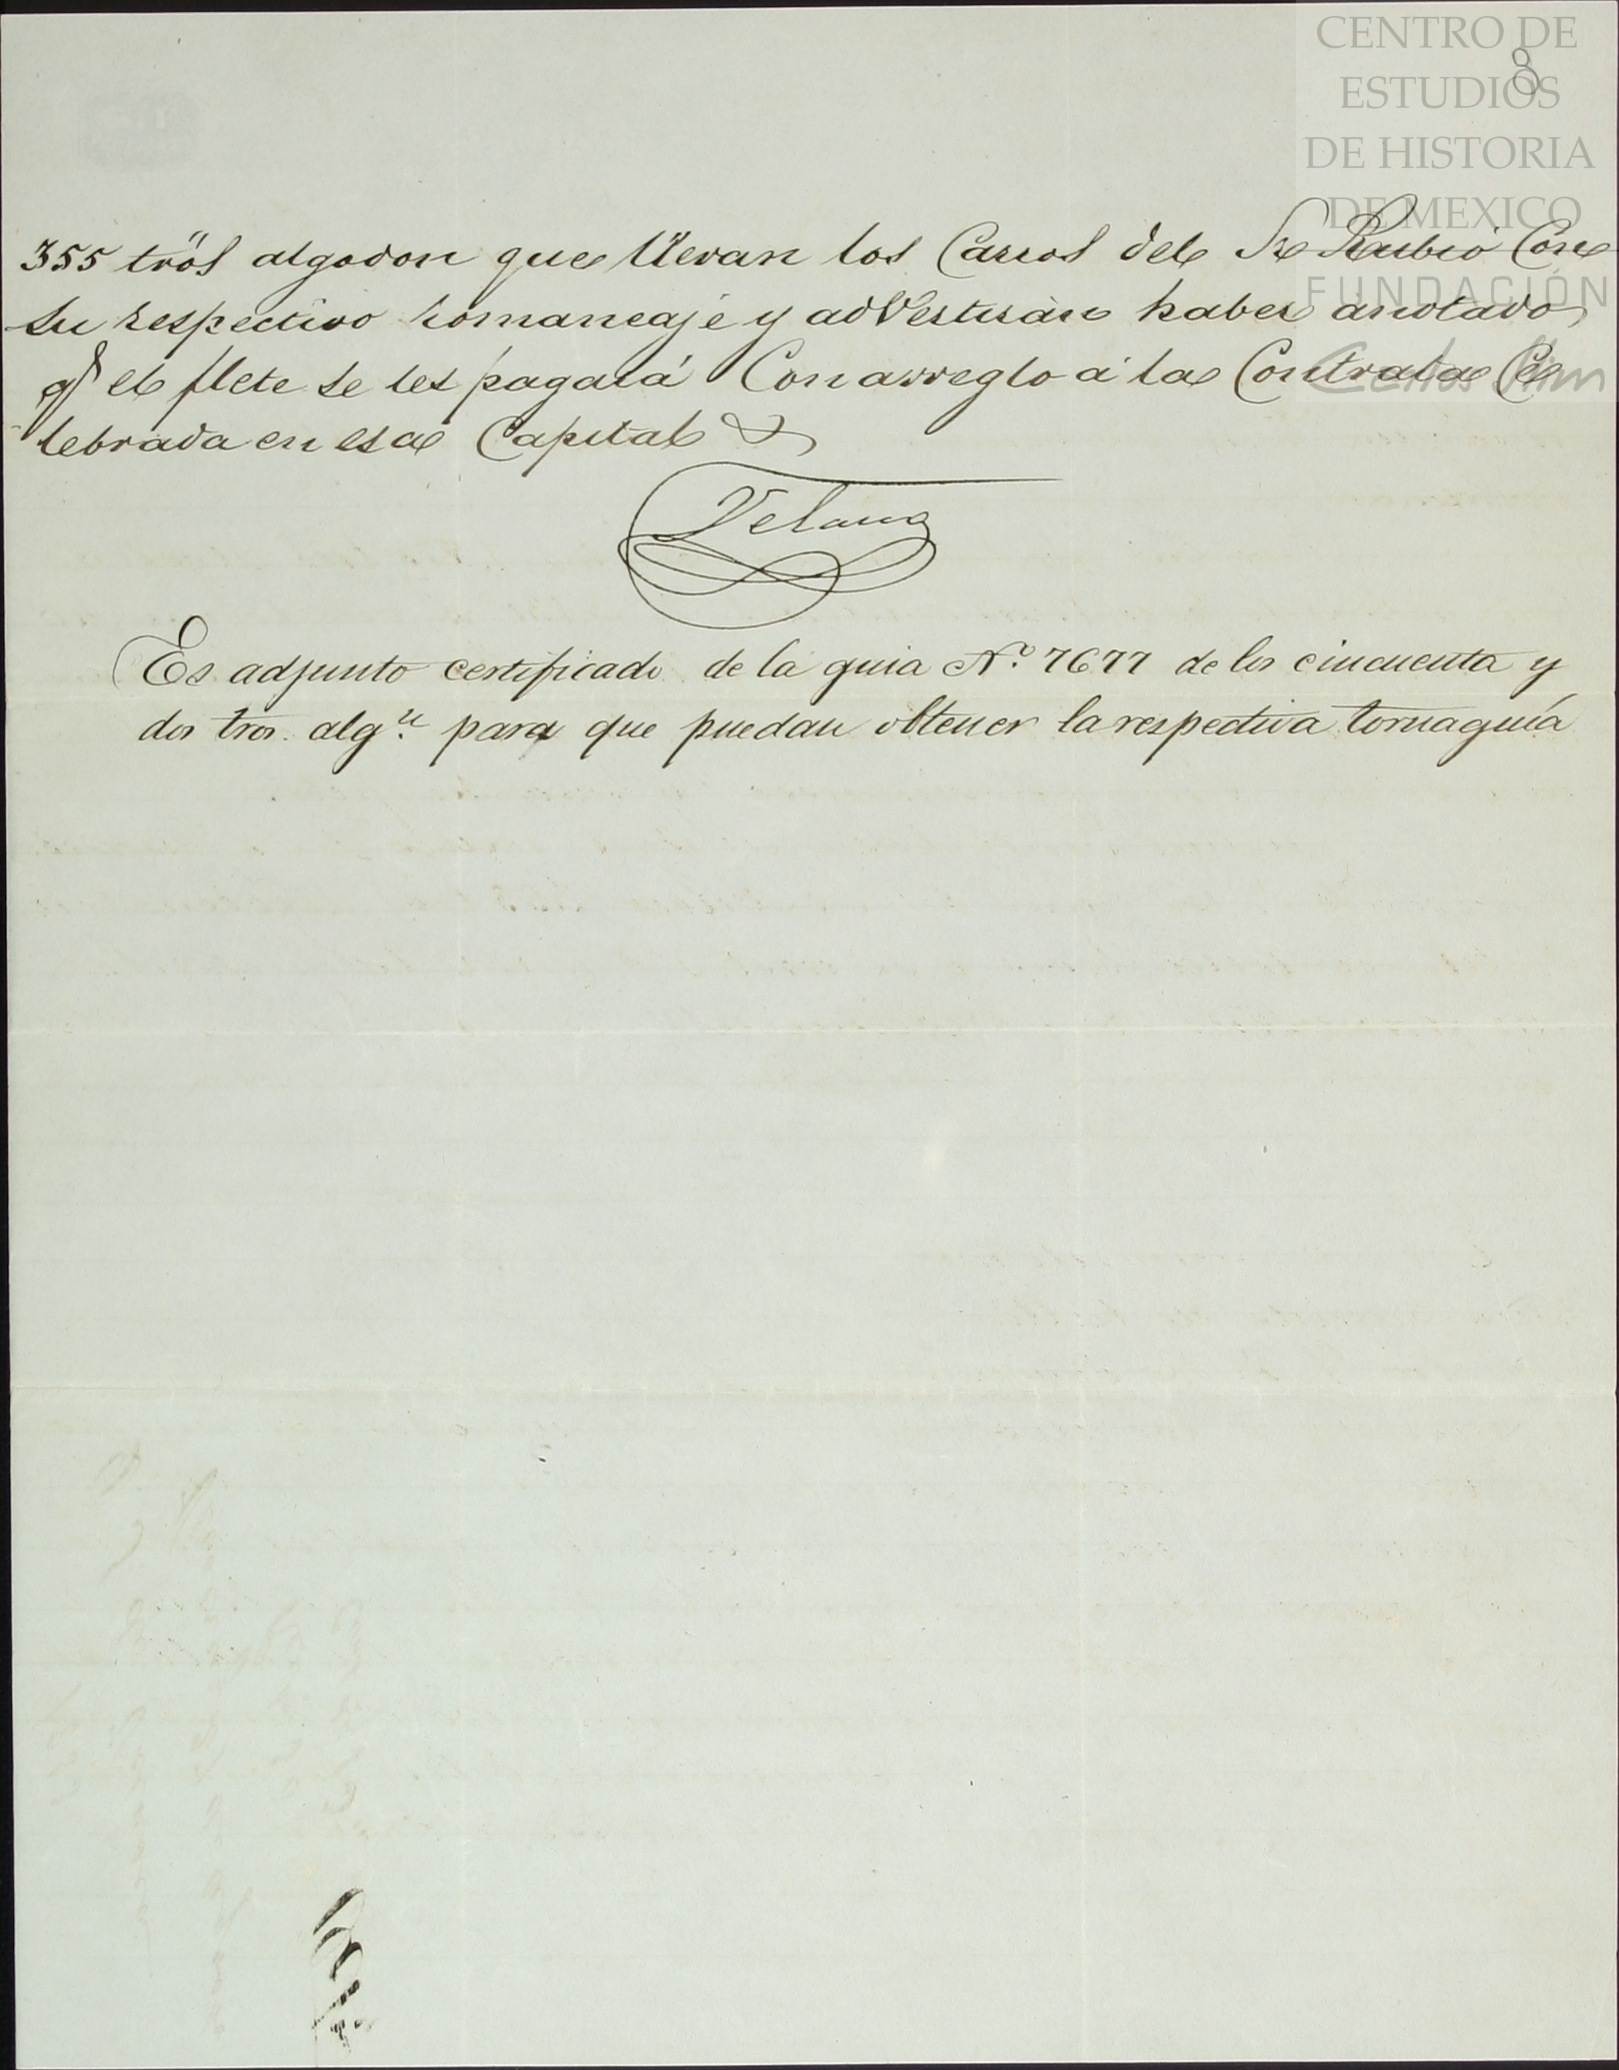 CENTRO DE
ESTUDIOS
DE HISTORIA
DE MEXICO
FUNDACIÓN
8
355 trõs algodon que llevan los Carros del Sr Rubio Con
su respectivo romaneaje y adVertiran haber anotado
q el flete se les pagará Con arreglo á la Contrata Ce
lebrada en esa Capital
Es adjunto certificado de la guia Nº 7677 de los cincuenta y
dos tros. algn. para que puedan obtener la respectiva tornaguía